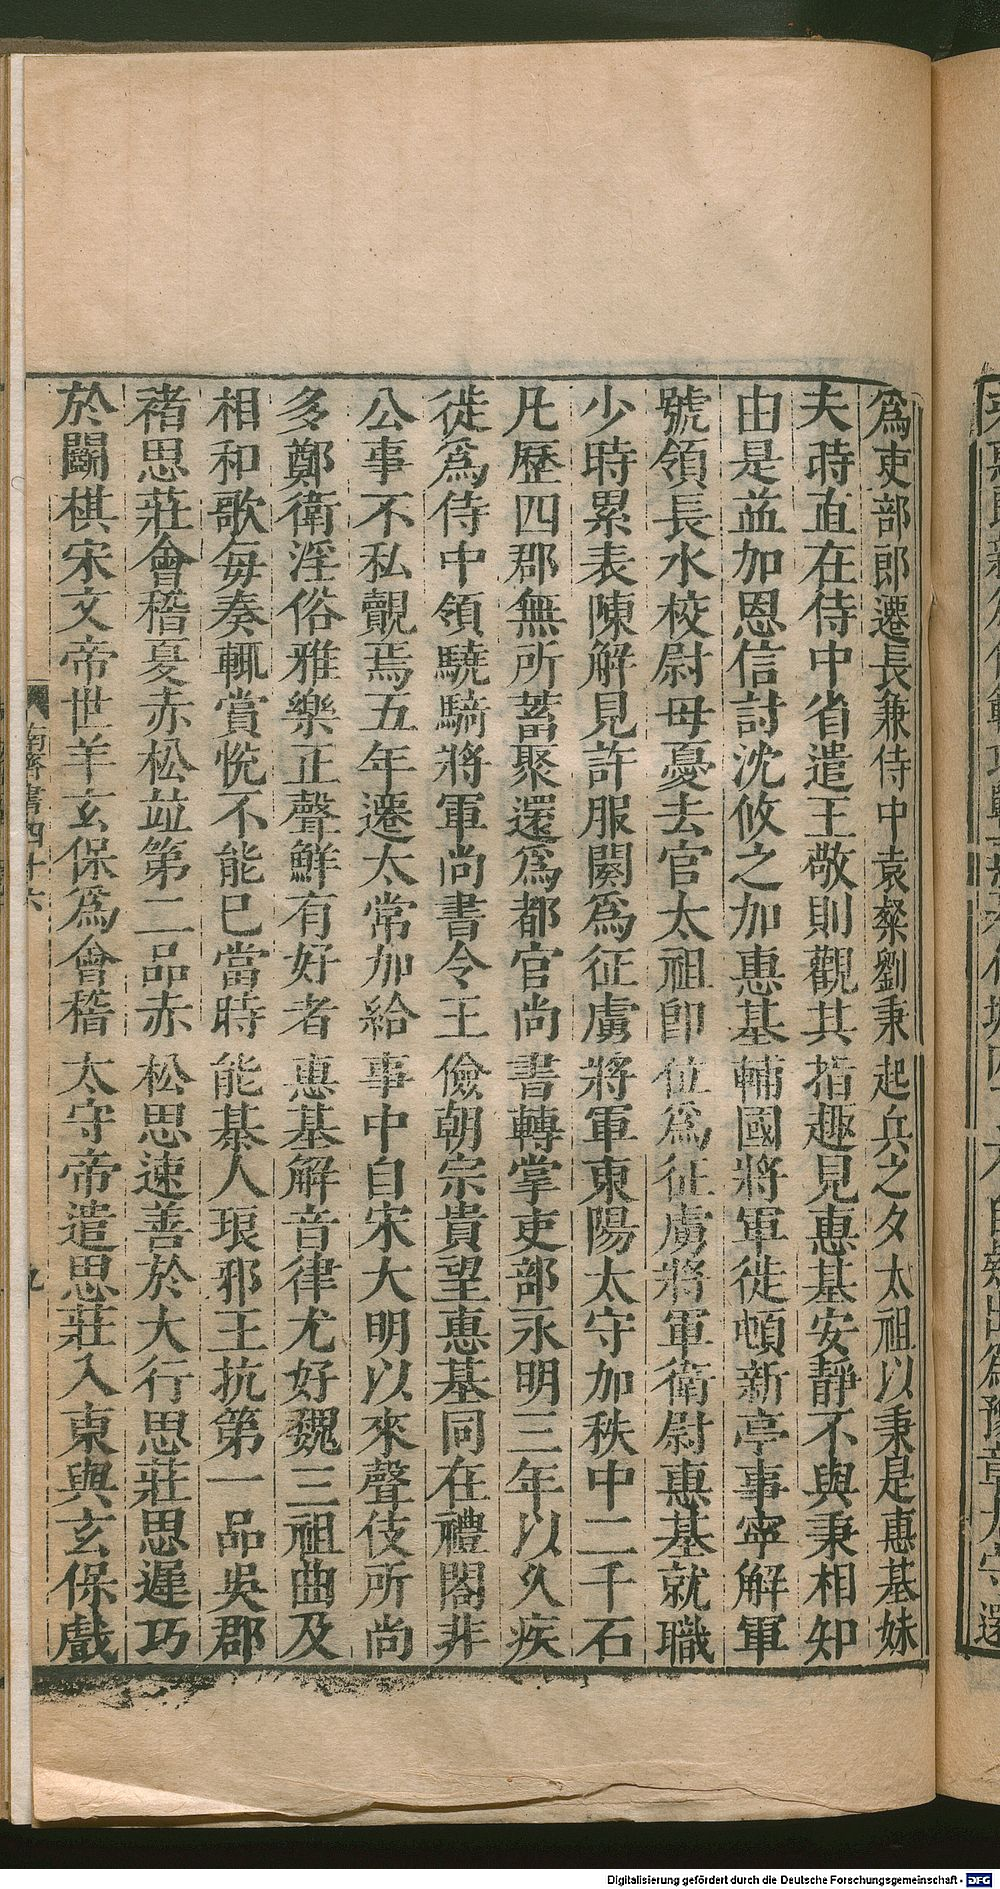 爲吏部郎遷長兼侍中袁粲劉秉起兵之夕太祖以秉是惠基妹
夫時直在侍中省遣王敬則觀其指趣見惠基安靜不與秉相知
由是益加恩信討沈攸之加惠基輔國將軍徙頓新亭事寧解軍
號領長水校尉母憂去官太祖卽位爲征虜將軍衛尉惠基就職
少時累表陳解見許服闋爲征虜將軍東陽太守加秩中二千石
凡歷四郡無所蓄聚還爲都官尚書轉掌吏部永明三年以久疾
徙爲侍中領驍騎將軍尚書令王儉朝宗貴望惠基同在禮閣非
公事不私覿焉五年遷太常加給事中自宋大明以來聲伎所尚
多鄭衛淫俗雅樂正聲鮮有好者惠基解音律尤好魏三祖曲及
相和歌每奏輒賞悅不能已當時能棊人琅邪王抗第一品吳郡
褚思莊會稽夏赤松竝第二品赤松思速善於大行思莊思遲巧
於鬬棋宋文帝世羊玄保爲會稽太守帝遣思莊入東與玄保戲
南齊書四十六
九
Digitalisierung gefördert durch die Deutsche Forschungsgemeinschaft - DFG